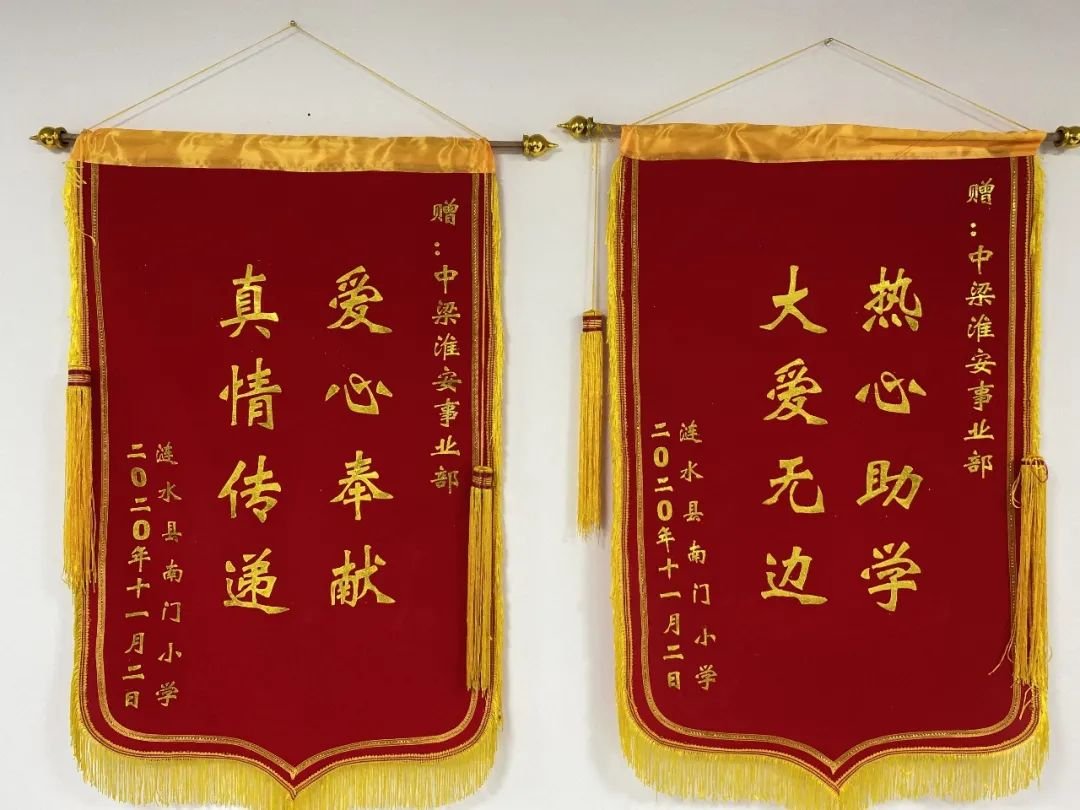 赠：中梁淮安事业部
爱心奉献
真情传递
涟水县南门小学
二0二0年十一月二日
赠：中梁淮安事业部
热心助学
大爱无边
涟水县南门小学
二0二0年十一月二日